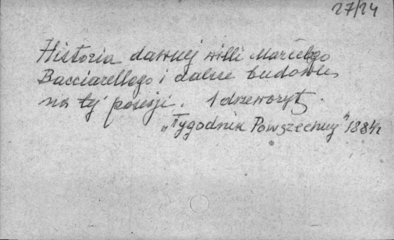 27/24
Historia dawnej willi Marcelego
Bacciarellego i dalsze budowle
na tej posesji. 1 drzeworyt.
„Tygodnik Powszechny" 1884